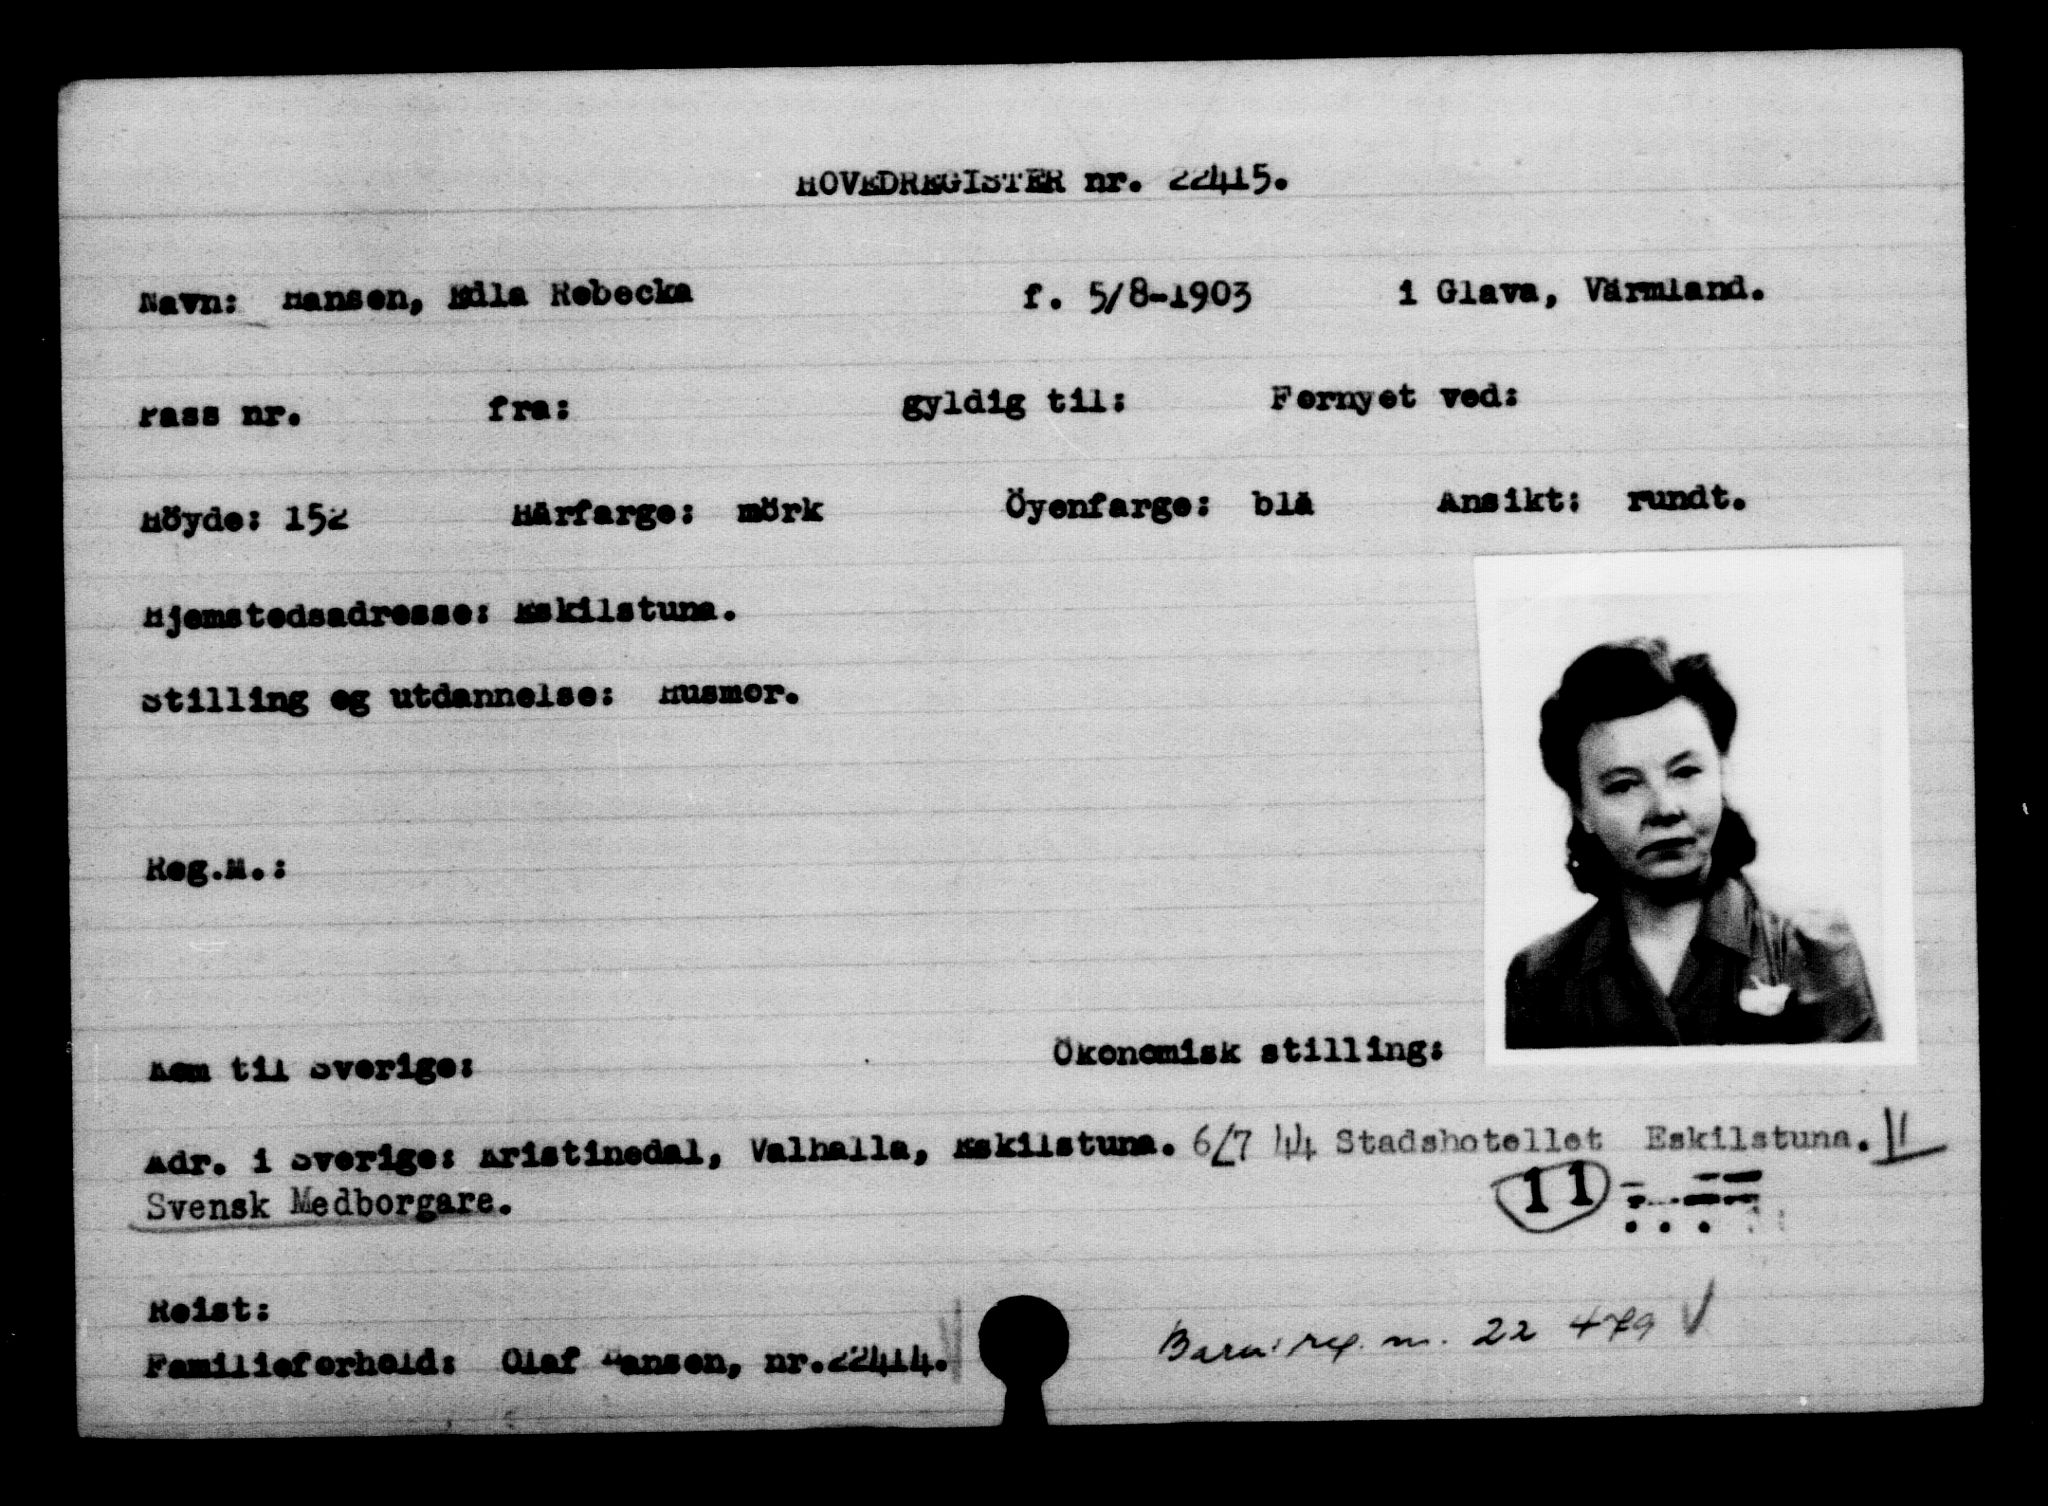 HOVEDREGISTER nr. 22415.
Navn: Hansen, Edla Rebecka f. 5/8-1903 i Glava, Värmland.
Pass nr. fra: gyldig til: Fornyet ved:
Höyde: 152 Hårfarge: mörk Öyenfarge: blå Ansikt: rundt.
Hjemstedsadresse: Eskilstuna.
Stilling og utdannelse: Husmor.
Reg.M.:
Kom til Sverige: Ökonomisk stilling:
Adr. i Sverige: Kristinedal, Valhalla, Eskilstuna. 6/7 44 Stadshotellet Eskilstuna. II
Svensk Medborgare. 11
Reist:
Familieforhold: Olaf Hansen, nr.22414. Barn: reg. nr. 22 479 V